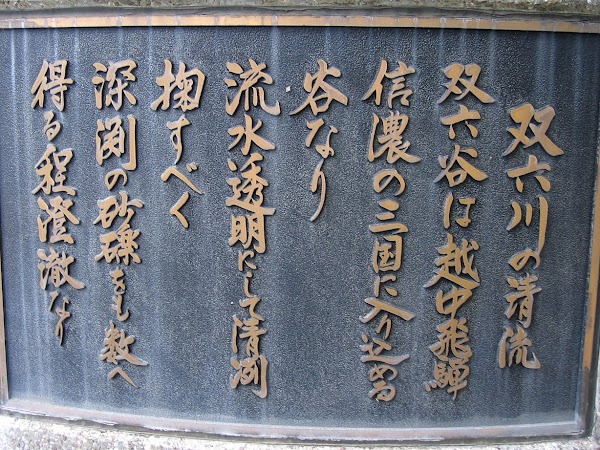 双六川の清流
双六谷は越中飛騨
信濃の三国に入り込める
谷なり
流水透明にして清冽
掬すべく
深渕の砂礫をも数へ
得る程澄澈なり